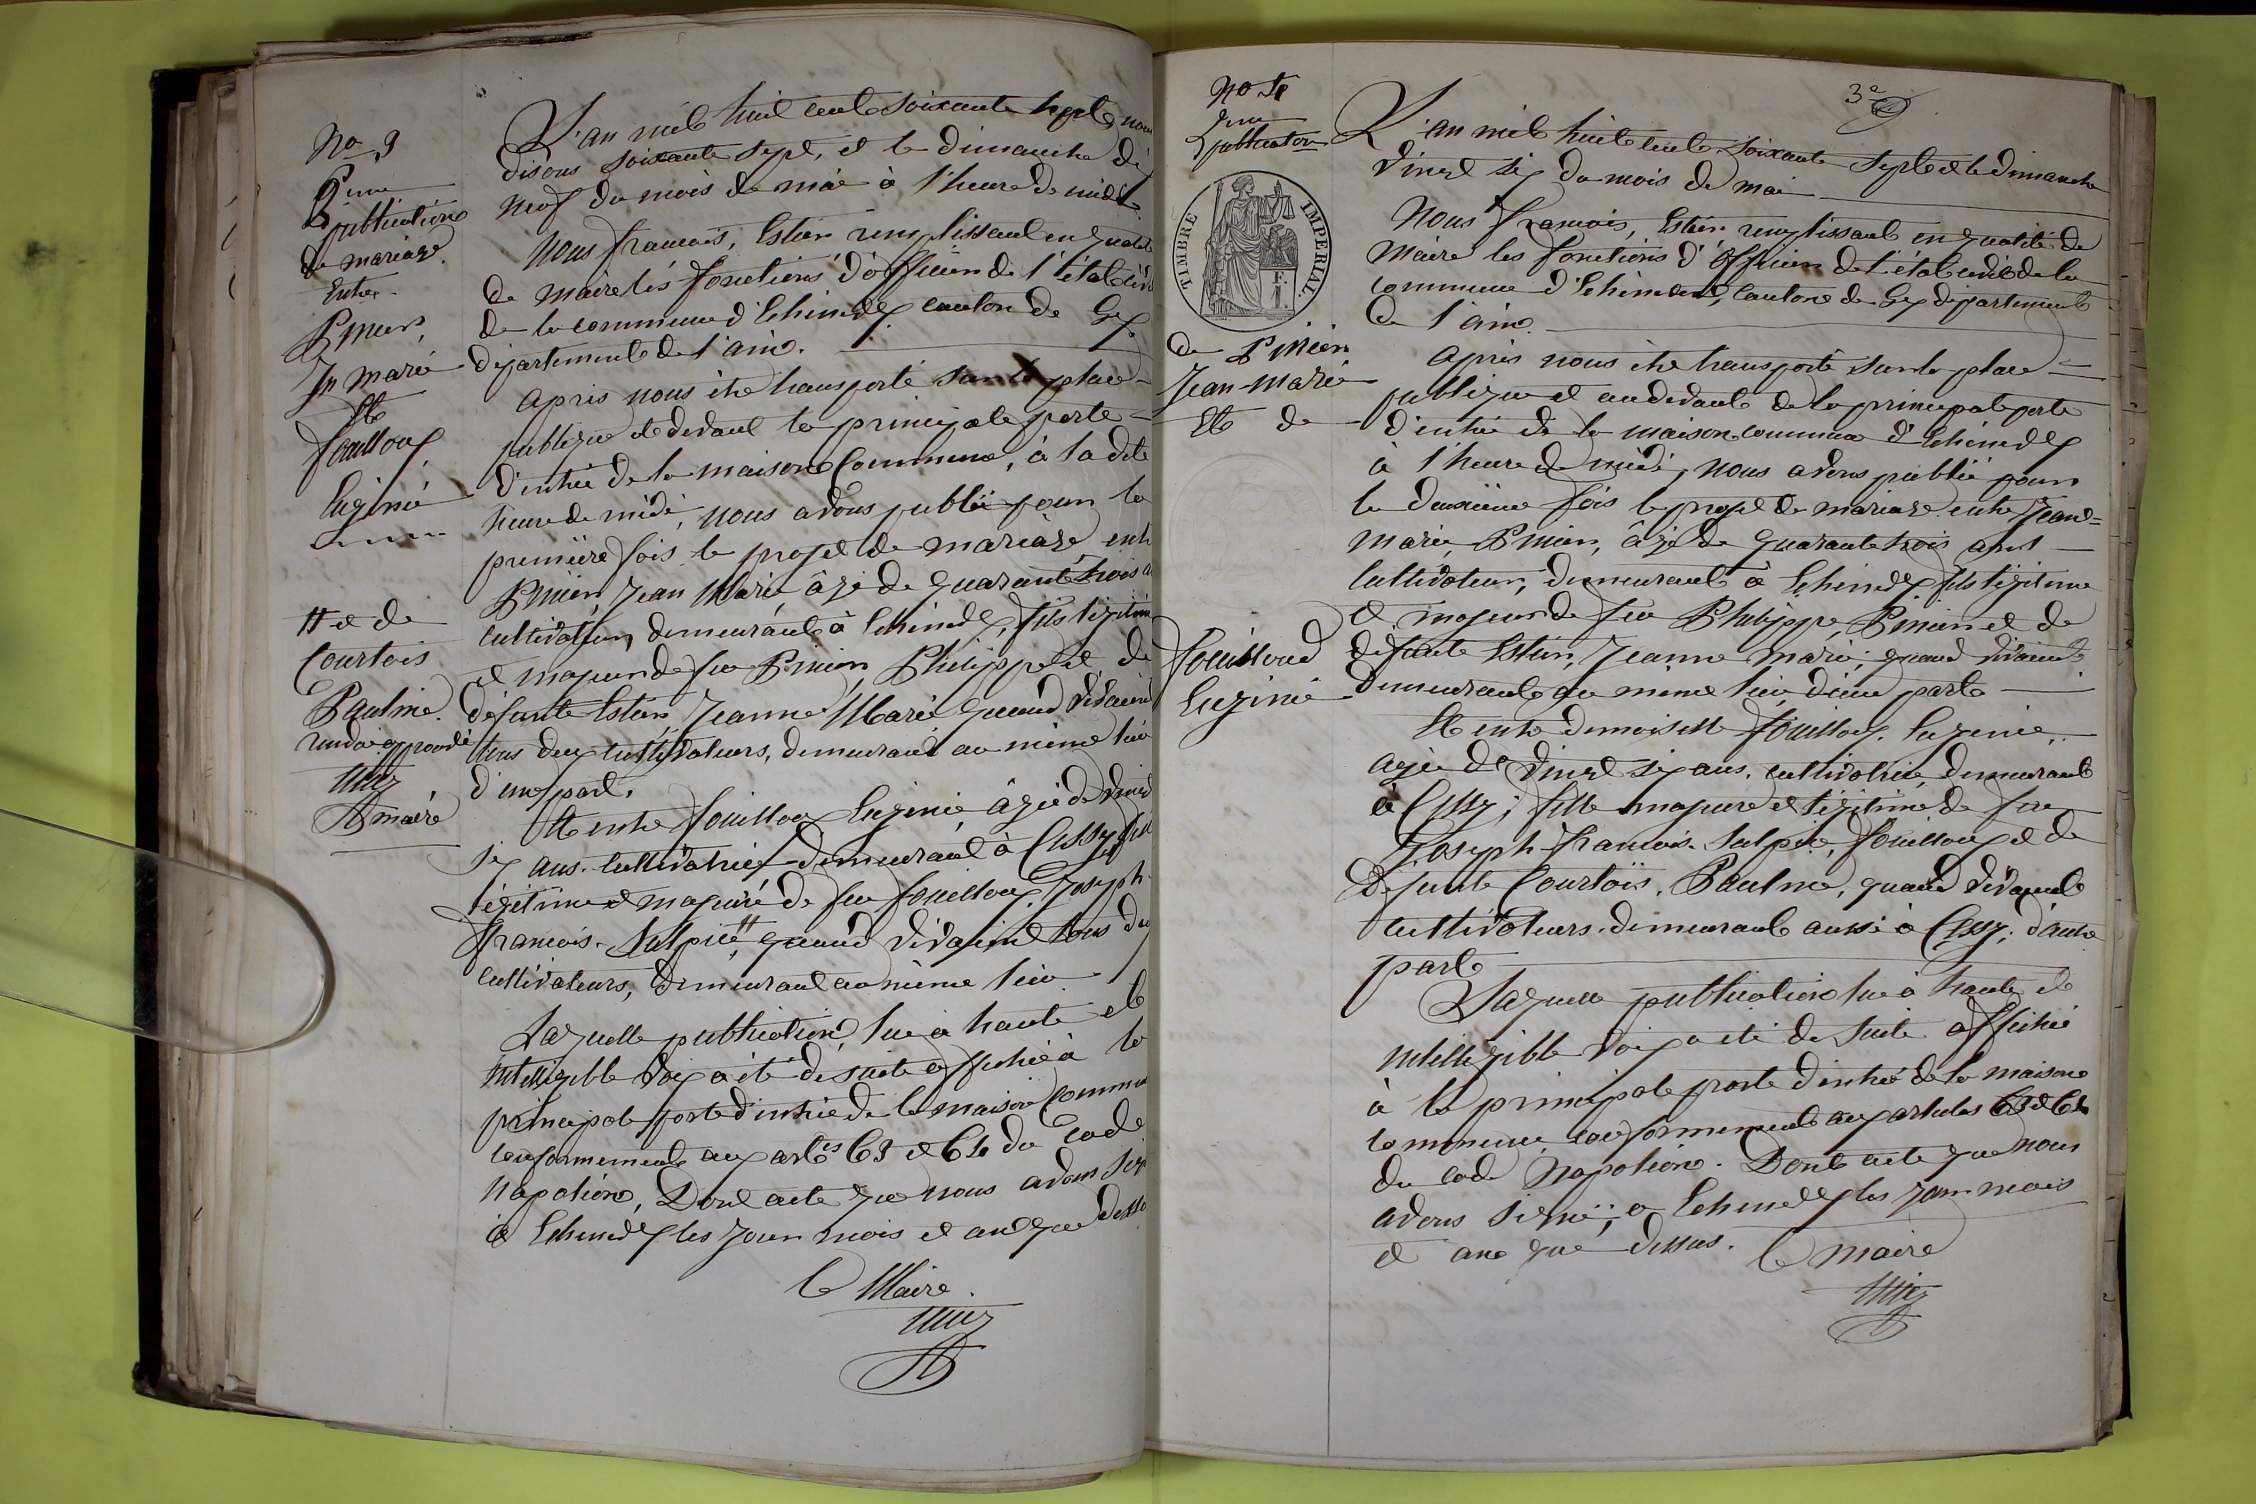 No 3
1ère
publication
de mariage
Entre
Pinier
Jn Marie
Et
Fouilloux
Eugénie
# et de
Courtois
Pauline.
renvoi approuvé
maire
L'an mil huit cent soixante sept, nous
disons soixante sept, et le dimanche dix
neuf du mois de mai à l'heure de midi.
Nous François, Estier remplissant en qualité
de maire les fonctions d'officier de l'état civil
de la commune d'Echenevex canton de Gex
département de l'ain.
Après nous être transporté sur la place
publique et devant la principale porte
d'entrée de la maison Commune, à la dite
heure de midi, nous avons publié pour la
première fois le projet de mariage entre
Pinier Jean Marie, âgé de quarante trois ans
cultivateur, demeurant à Echenevex, fils légitime
et majeur de feu Pinier, Philippe et de
défunte Estier Jeanne Marie quand vivaient
tous deux cultivateurs, demeurant au même lieu
d'une part.
Et entre Fouilloux Eugénie âgée de vingt
six ans. cultivatrice demeurant à Cessy fille
légitime et majeure de feu Fouilloux, Joseph
François. Sulpice # quand vivaient tous deux
cultivateurs, demeurant au même lieu.
Laquelle publication lue à haute et
intelligible voix a été de suite affichée à la
principale porte d'entrée de la maison Commune
conformément aux artles 63 et 64 du code
Napoléon, Dont acte que nous avons signé
à Echenevex les jour mois et an que dessus
Le Maire
3e
No 4
2me
publication
TIMBRE IMPERIAL.
de Pinier
Jean-Marie
Et de
Fouilloud
Eugénie
L'an mil huit cent soixante sept et le dimanche
vingt six du mois de mai
Nous François, Estier remplissant en qualité de
Maire les fonctions d'Officier de l'état civil de la
commune d'Echenevex, canton de Gex département
de l'ain.
Après nous être transporté sur la place
publique et au devant de la principale porte
d'entrée de la maison commune d'Echenevex
à l'heure de midi, nous avons publié pour
la deuxième fois le projet de mariage entre Jean=
Marie, Pinier, âgé de quarante trois ans
cultivateur, demeurant à Echenevex, fils légitime
et majeur de feu Philippe, Pinier et de
défunte Estier, Jeanne Marie; quand vivaient
demeurant au même lieu d'une part
Et entre demoiselle Fouilloux. Eugénie,
agée de vingt six ans, cultivatrice, demeurant
à Cessy; fille majeure et légitime de feu
Joseph-François. Sulpice, Fouilloux et de
défunte Courtois. Pauline, quand vivaient
cultivateurs demeurant aussi à Cessy; d'autre
part
Laquelle publication lue à haute et
intelligible voix a été de suite affichée
à la principale porte d'entrée de la maison
commune, conformément aux articles 63 et 64
du code Napoléon. Dont acte que nous
avons signé; à Echenevex les jour mois
et an que dessus.
Le Maire